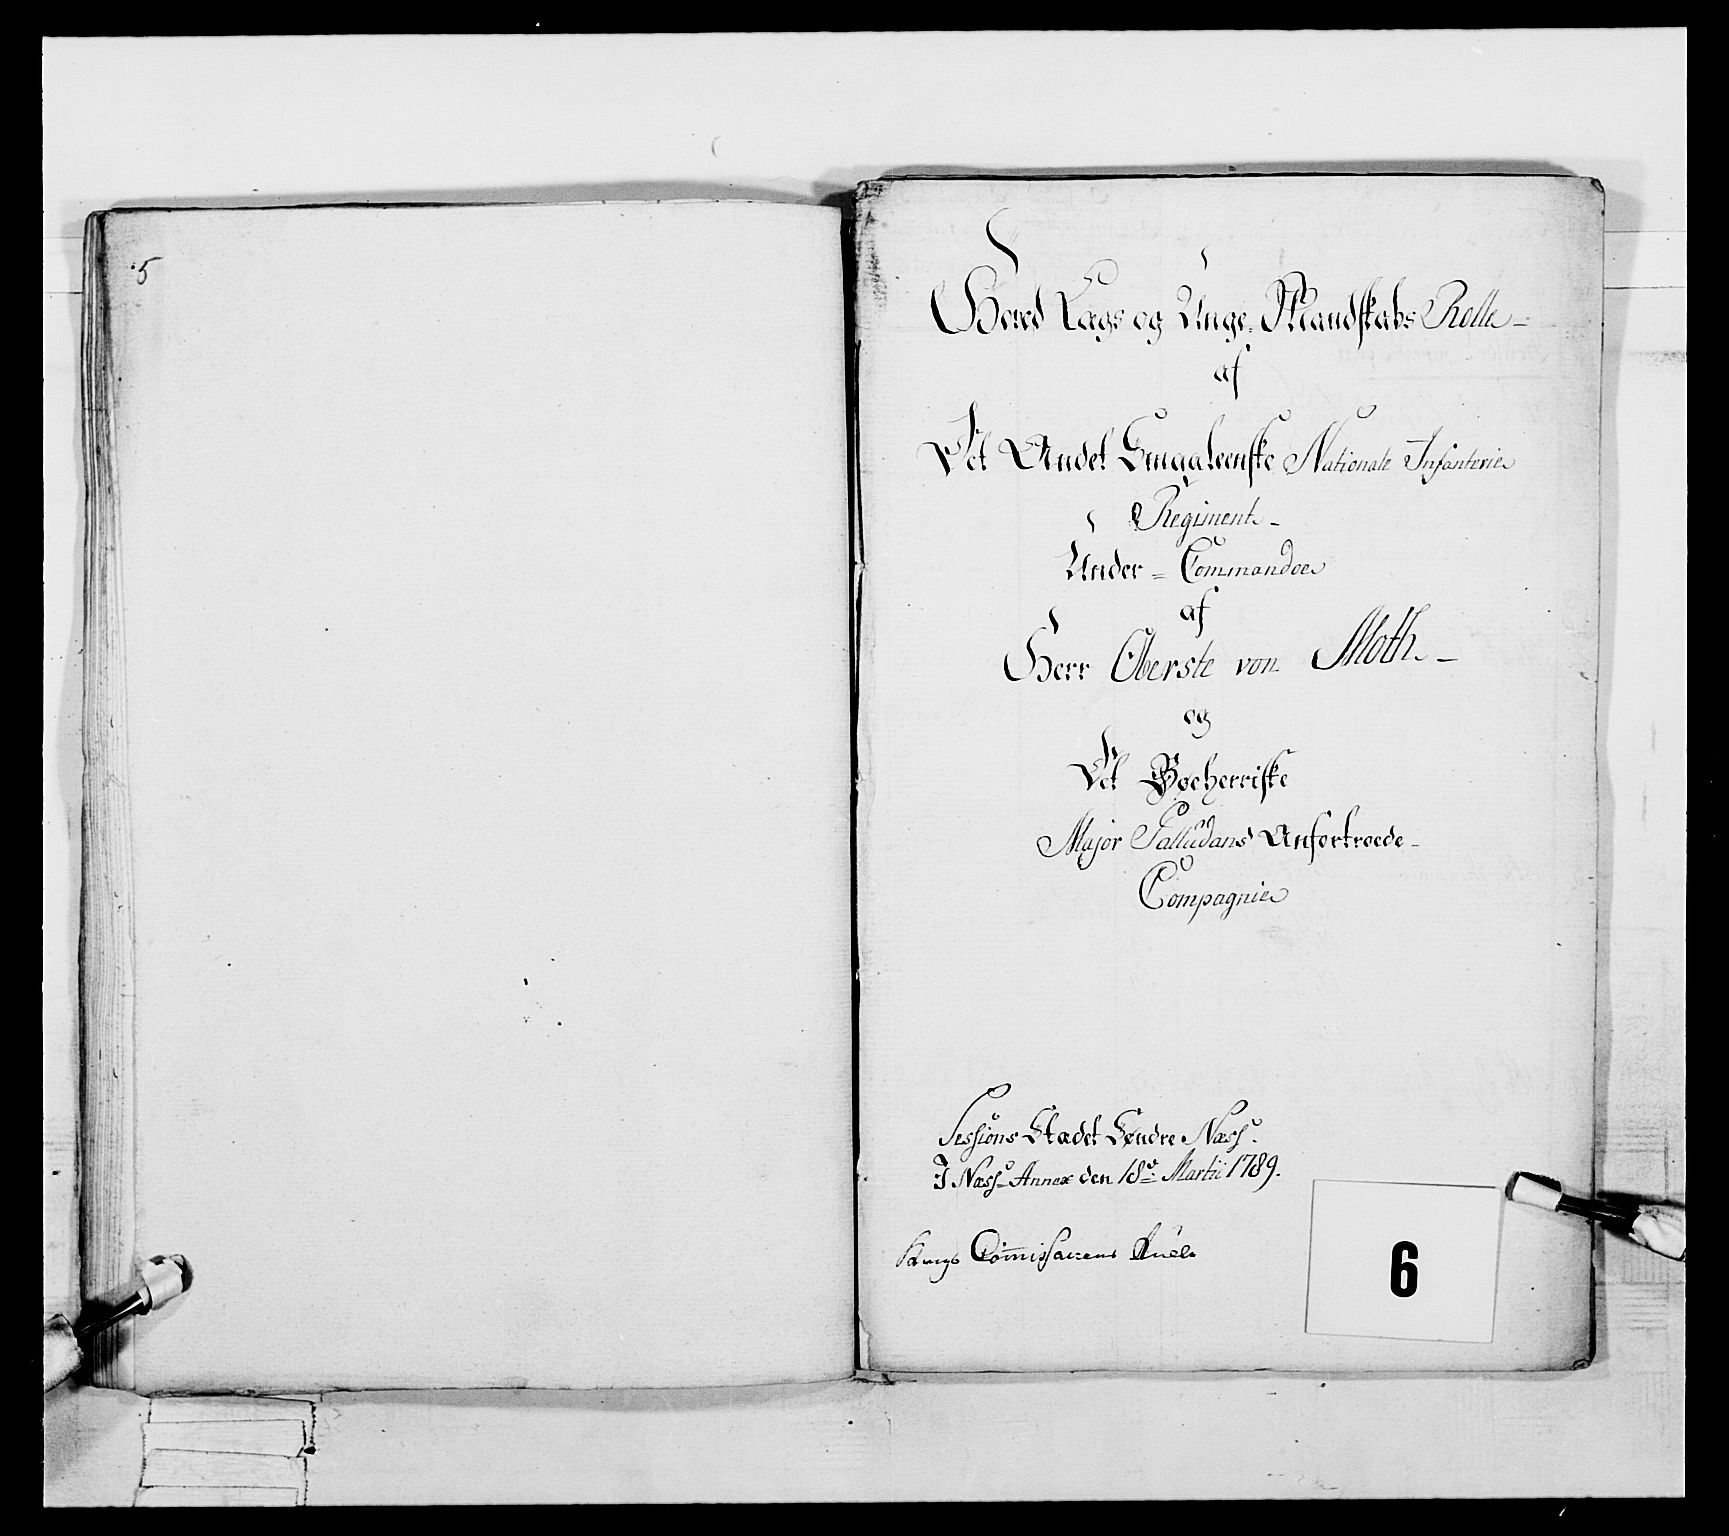 5
Hoved Lægs og Unge Mandskabs Rolle
af
Det Andet Smaaleenske Nationale Infanterie
Regiment
Under = Commandoe
af
Herr Oberste von Moth
og
Det
Major Palludans Anfortroede
Compagnie
Sessions Stædet Søndre Næss.
I Næss Annex den 18de Martii 1789.
Krigs Commissairens
6